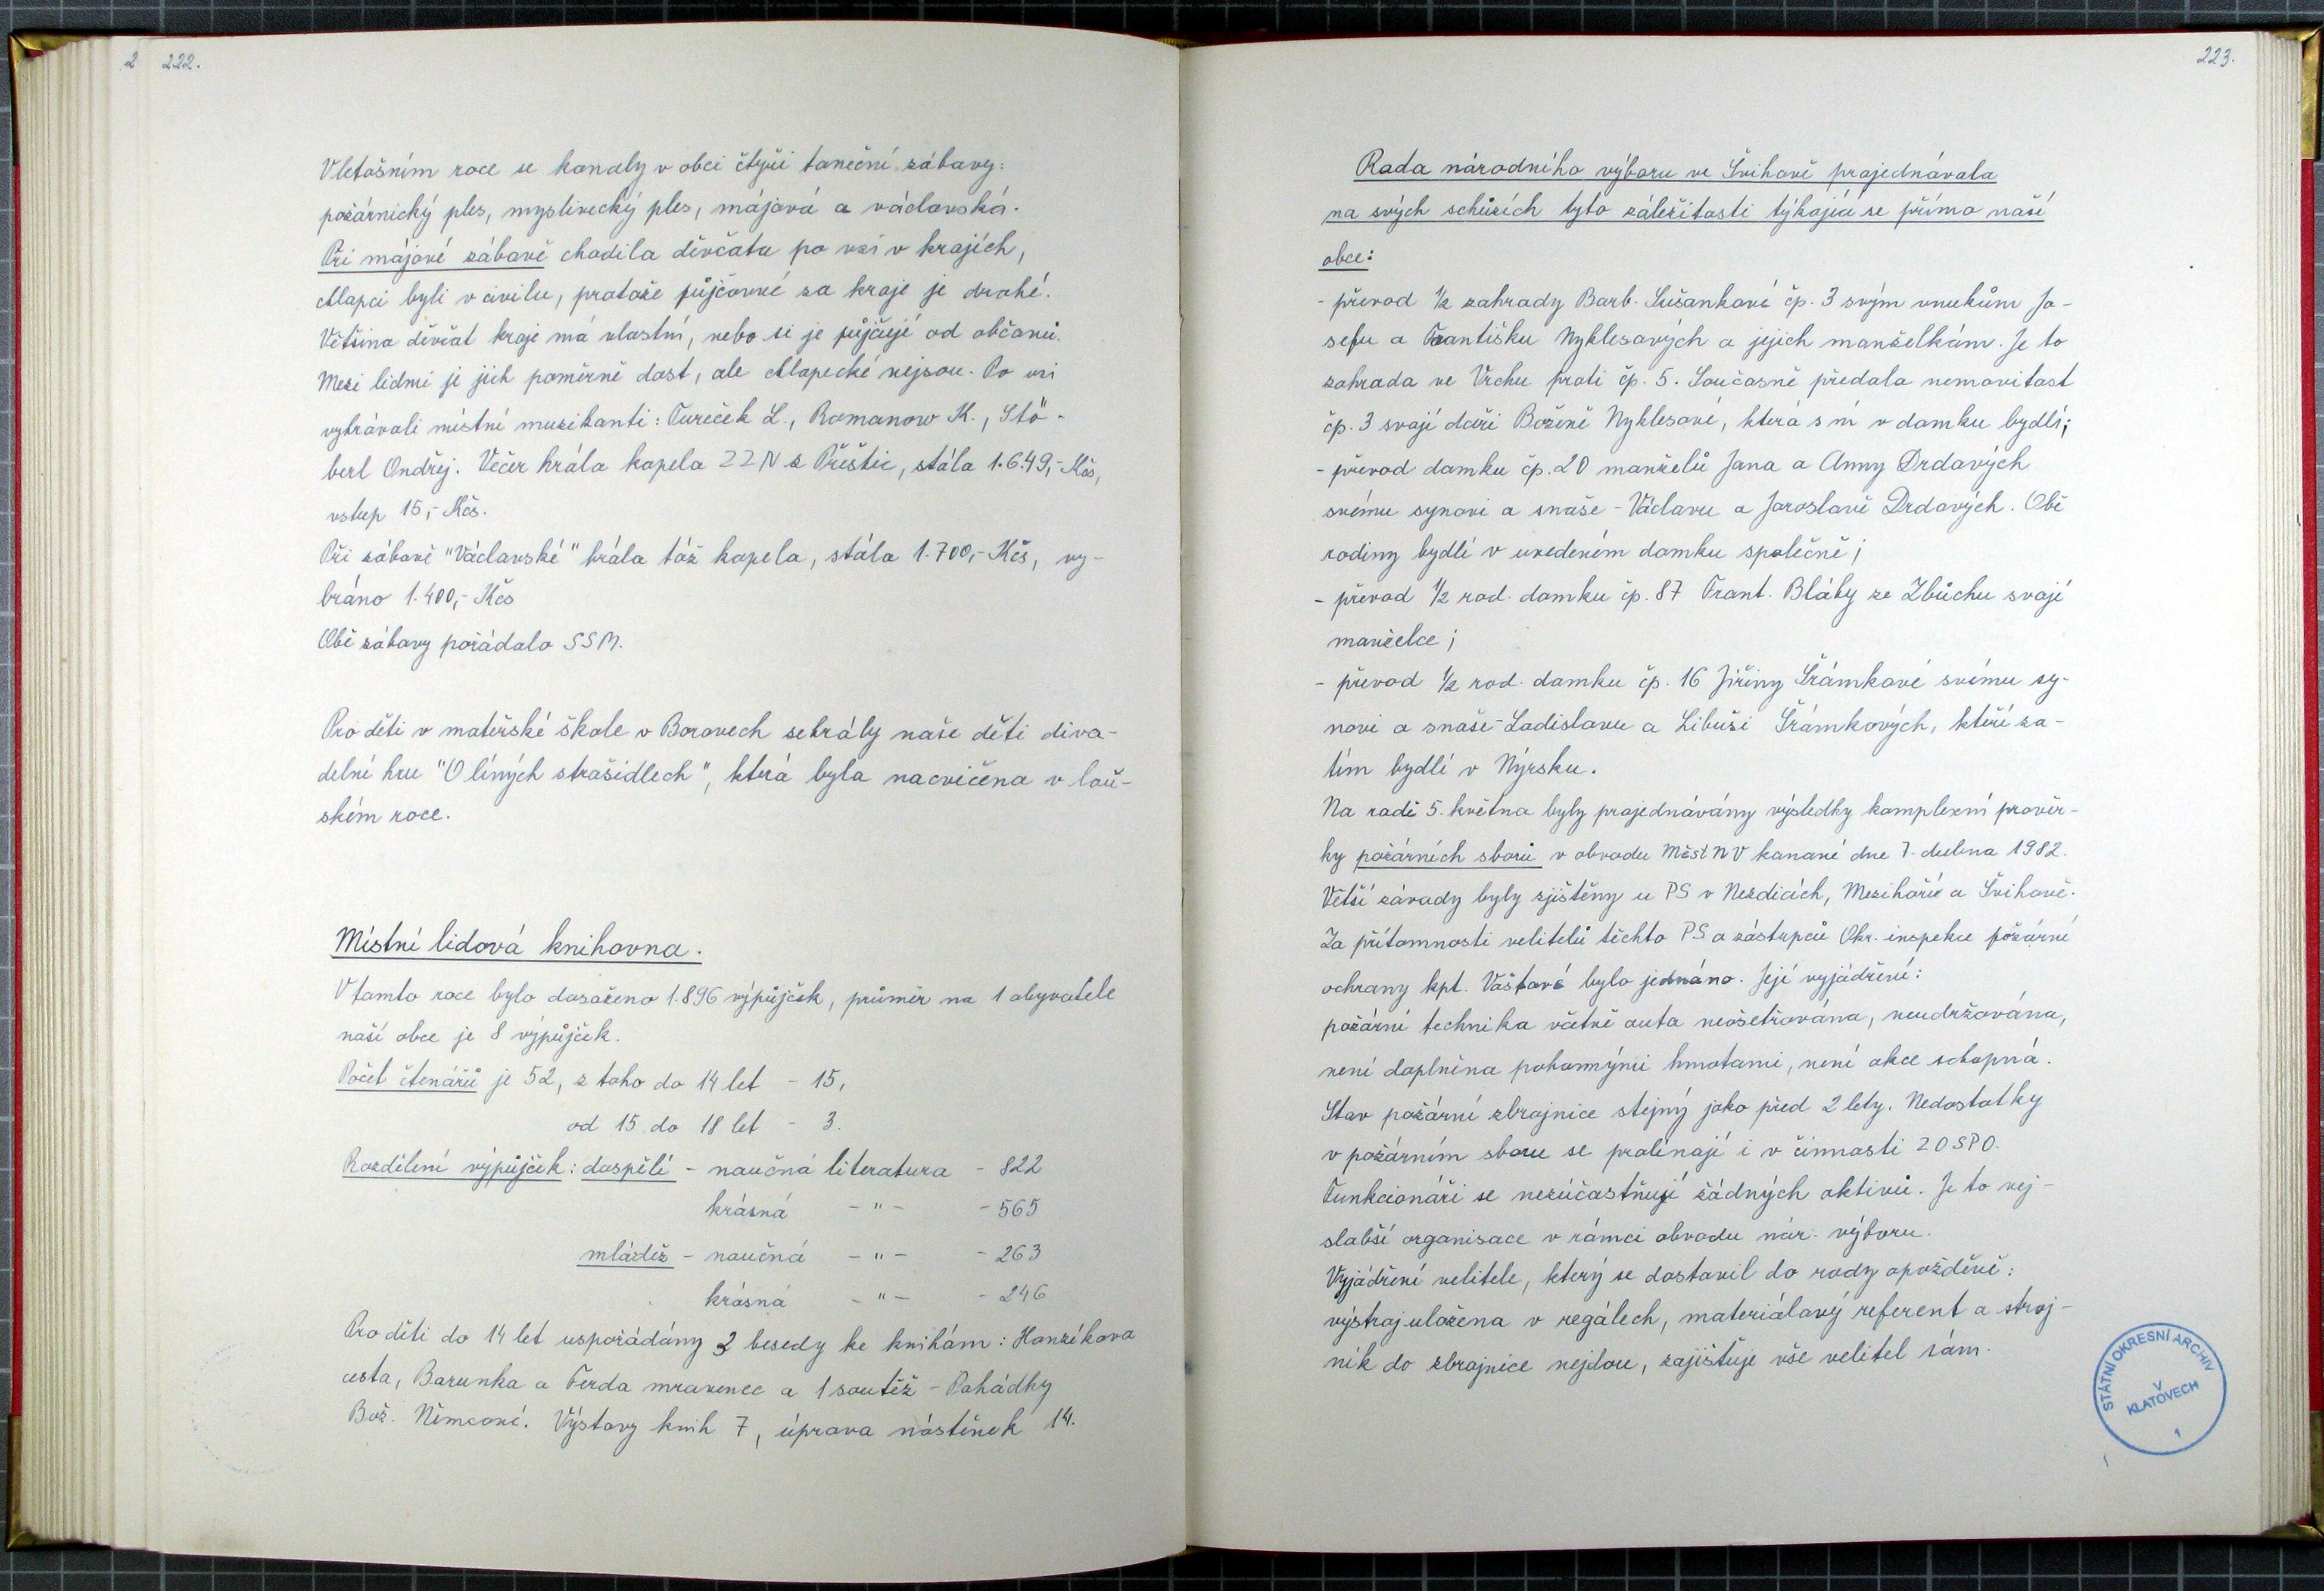 2 222.
V letošním roce se konaly v obci čtyři taneční zábavy:
požárnický ples, myslivecký ples, májová a václavská.
Při májové zábavě chodila děvčata po vsi v krojích,
chlapci byli v civilu, protože půjčovné za kroje je drahé.
Většina děvčat kroje má vlastní, nebo si je půjčují od občanů.
Mezi lidmi je jich poměrně dost, ale chlapecké nejsou. Po vsi
vyhrávali místní muzikanti: Tureček L., Romanow K., Stö-
berl Ondřej. Večer hrála kapela 22N z Přeštic, stála 1.649,- Kčs,
vstup 15,- Kčs.
Při zábavě "Václavské" hrála táž kapela, stála 1.700,- Kčs, vy-
bráno 1.400,- Kčs
Obě zábavy pořádala SSM.
Pro děti v mateřské škole v Borovech sehrály naše děti diva-
delní hru "O líných strašidlech", která byla nacvičena v loň-
ském roce.
Místní lidová knihovna.
V tomto roce bylo dosaženo 1.896 výpůjček, průměr na 1 obyvatele
naší obce je 8 výpůjček.
Počet čtenářů je 52, z toho do 14 let - 15,
od 15 do 18 let - 3.
Rozdělení výpůjček: dospělí - naučná literatura - 822
krásná - " - - 565
mládež - naučná - " - - 263
krásná - " - - 246
Pro děti do 14 let uspořádány 3 besedy ke knihám: Honzíkova
cesta, Barunka a Ferda mravenec a 1 soutěž - Pohádky
Bož. Němcové. Výstavy knih 7, úprava nástěnek 14.
223.
Rada národního výboru ve Švihově projednávala
na svých schůzích tyto záležitosti týkající se přímo naší
obce:
- převod 1/2 zahrady Barb. Sušankové čp. 3 svým vnukům Jo-
sefu a Františku Nyklesových a jejich manželkám. Je to
zahrada ve Vrchu proti čp. 5. Současně předala nemovitost
čp. 3 svojí dceři Boženě Nyklesové, která s ní v domku bydlí;
- převod domku čp. 20 manželů Jana a Anny Drdových
svému synovi a snaše - Václavu a Jaroslavě Drdových. Obě
rodiny bydlí v uvedeném domku společně;
- převod 1/2 rod. domku čp. 87 Frant. Bláhy ze Zbůchu svojí
manželce;
- převod 1/2 rod. domku čp. 16 Jiřiny Šrámkové svému sy-
novi a snaše - Ladislavu a Libuši Šrámkových, kteří za-
tím bydlí v Nýrsku.
Na radě 5. května byly projednávány výsledky komplexní prověr-
ky požárních sborů v obvodu MěstNV konané dne 7. dubna 1982.
Větší závady byly zjištěny u PS v Nezdicích, Mezihoří a Švihově.
Za přítomnosti velitelů těchto PS a zástupců Okr. inspekce požární
ochrany kpt. Vaštové bylo jednáno. Její vyjádření:
požární technika včetně auta neošetřována, neudržována,
není doplněna pohonnými hmotami, není akce schopná.
Stav požární zbrojnice stejný jako před 2 lety. Nedostatky
v požárním sboru se prolínají i v činnosti ZOSPO.
Funkcionáři se nezúčastňují žádných aktivů. Je to nej-
slabší organisace v rámci obvodu nár. výboru.
Vyjádření velitele, který se dostavil do rady opožděně:
výstroj uložena v regálech, materiálový referent a stroj-
ník do zbrojnice nejdou, zajišťuje vše velitel sám.
STÁTNÍ OKRESNÍ ARCHIV
V
KLATOVECH
1